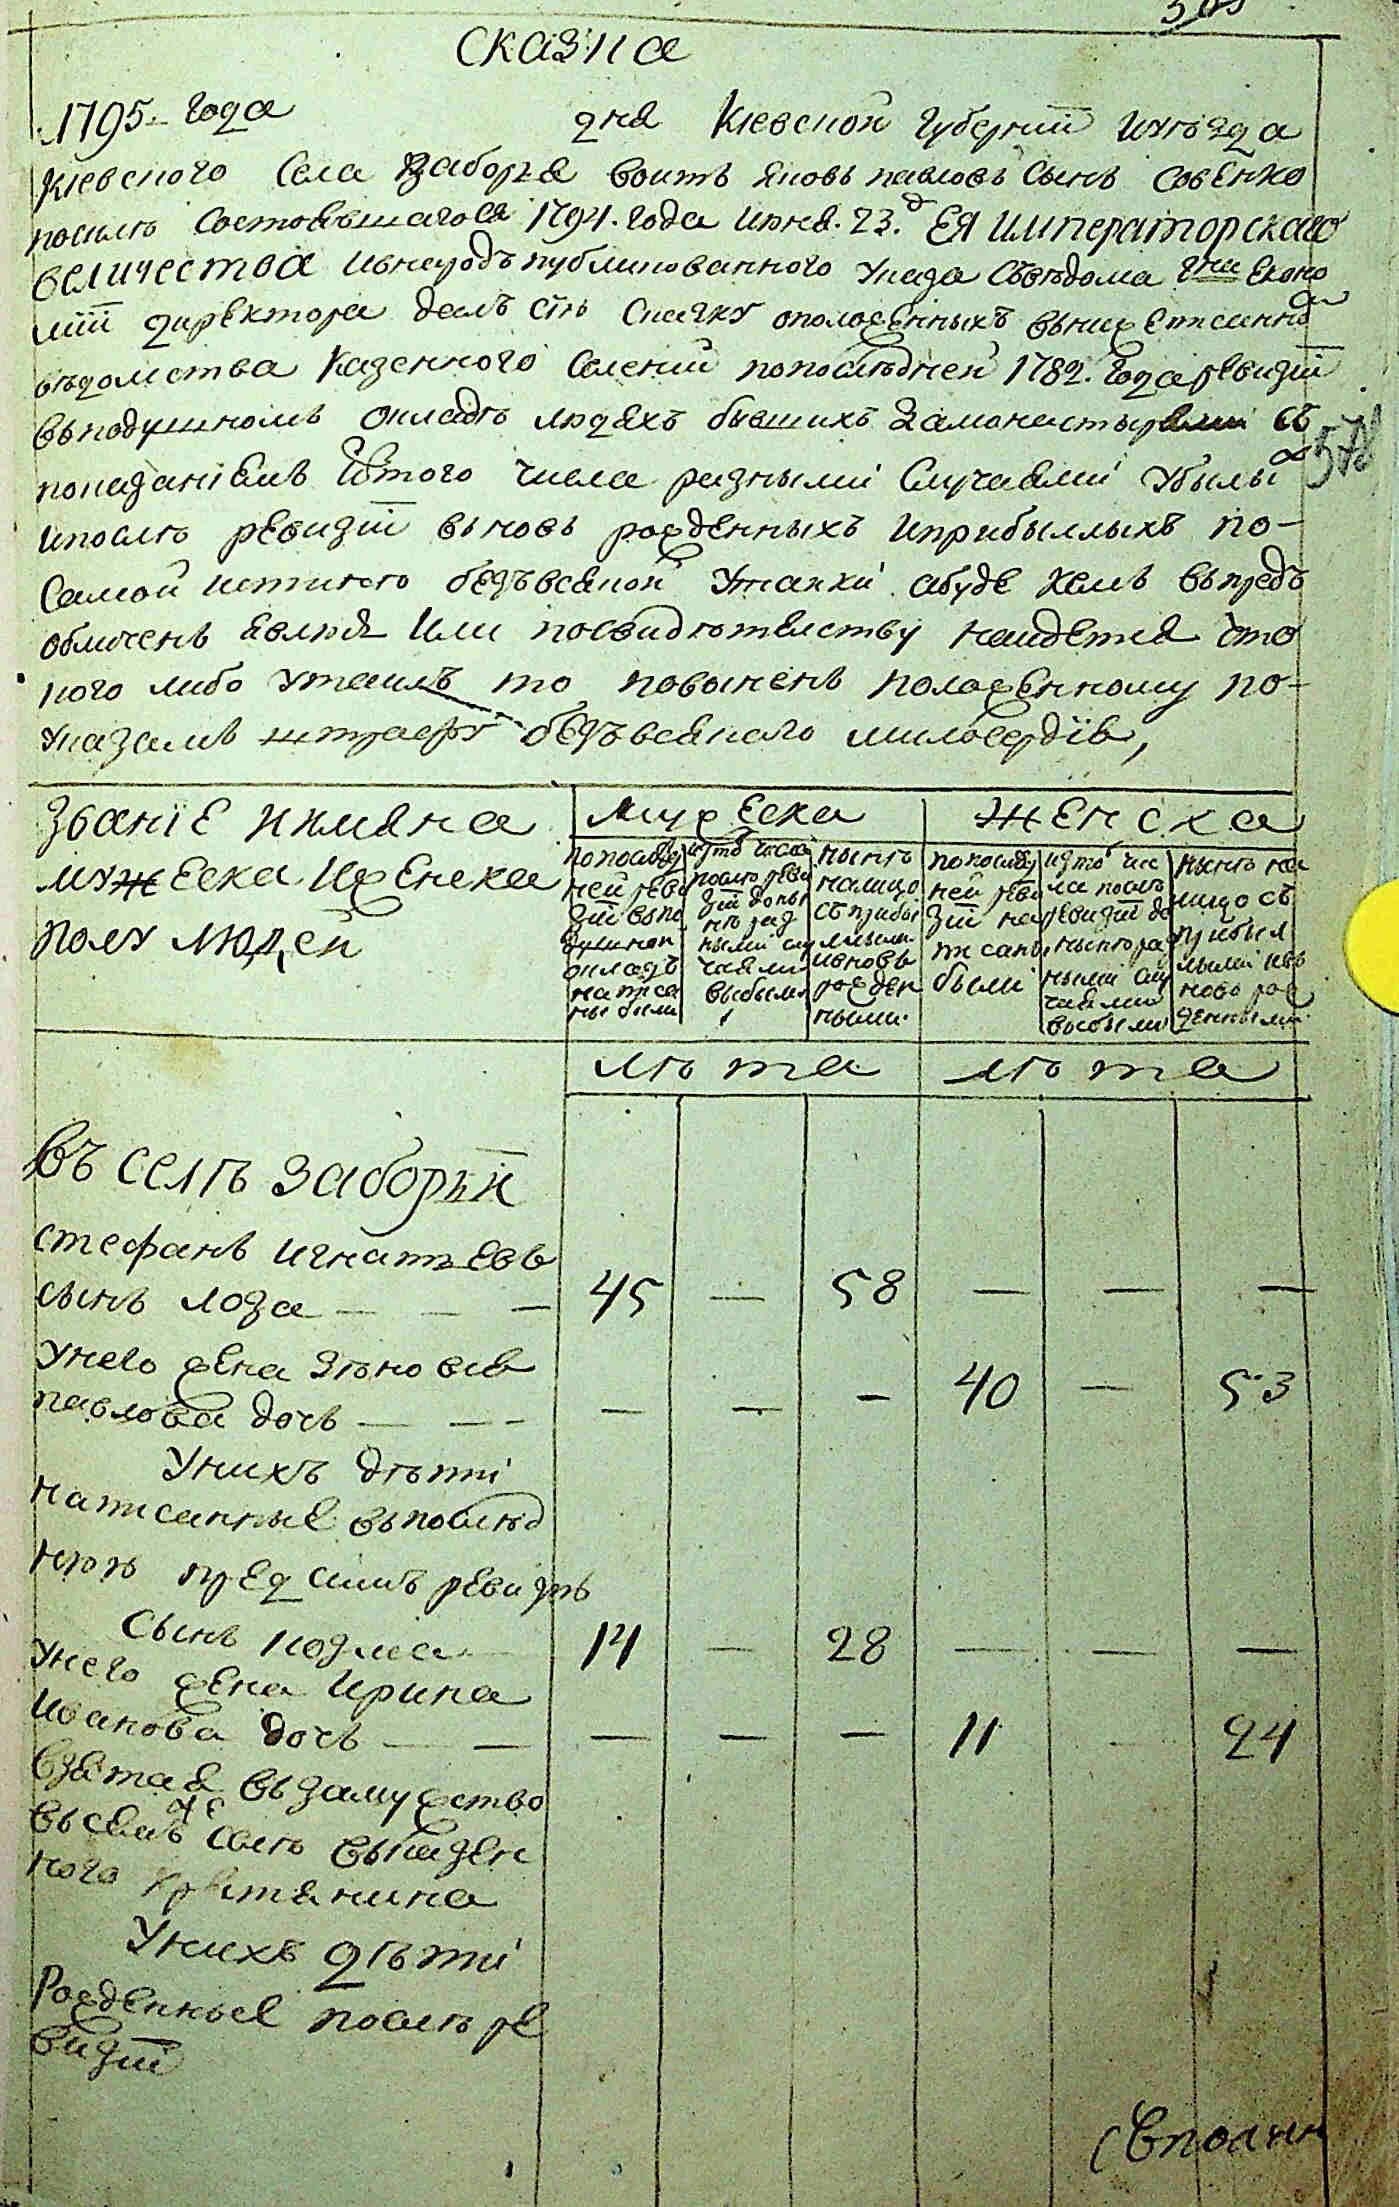 сказка
1795. года дня Киевской губернии и уезда
Киевского села Заборья войтъ Яковъ павловъ сынъ Совенко
по силе состоявшагося 1794. года июня. 23. д ЕЯ ИМПЕРАТОРСКАГО
ВЕЛИЧЕСТВА и внародъ публикованного указа съ ведома гна еконо
мїи директора далъ сїю сказку оположенныхъ
ведомства казенного селении попоследней 1782. года ревизїи
въ подушномъ окладѣ людяхъ бывшихъ замонастырями съ
показанїемъ изтого числа разными случаями убылы
ипослѣ ревизїи вьновь рожденныхъ иприбылыхъ по-
самой истиннѣ безъ всякой утайки. абуде кемъ въпредъ
обличенъ явлюся или посвидѣтелству найдется что
кого либо утаилъ то повиненъ положенному по-
указамъ штрафу безъ всякого милосердїя,
Званїе и имяна
мужеска и женска
полу людей
мужеска женска
попослѣд
ней реви
зїи въпо
душном
окладѣ
написа
ны были
изтого числа
послѣ реви
зїи доны
нѣ раз
ными слу
чаями
выбыли
нынѣ
налицо
съ прибы
лыми
ивновь
рожден
ными.
попослѣд
ней реви
зїи на
писаны
были
изтого чис
ла послѣ
ревизїи до
нынѣ раз
ными слу
чаями
выбыли
нынѣ на
лицо съ
прибыл
лыми ивь
новь рож
денными.
лѣта лѣта
въ селѣ заборьи
стефанъ игнатьевъ
сынъ лоза — — — 45 — 58 — — —
унего жена зѣновия
павлова дочь — — — — — — 40 — 53
унихъ дѣти
написанные въпослѣд
нюю пред симъ ревизию
сынъ козма — 14 — 28 — — —
унего жена ирина
иванова дочь — — — — — 11 — 24
взятая въ замужство
въ семъ же селѣ в казен
ного крестянина
унихъ дѣти
рожденные послѣ ре
визїи